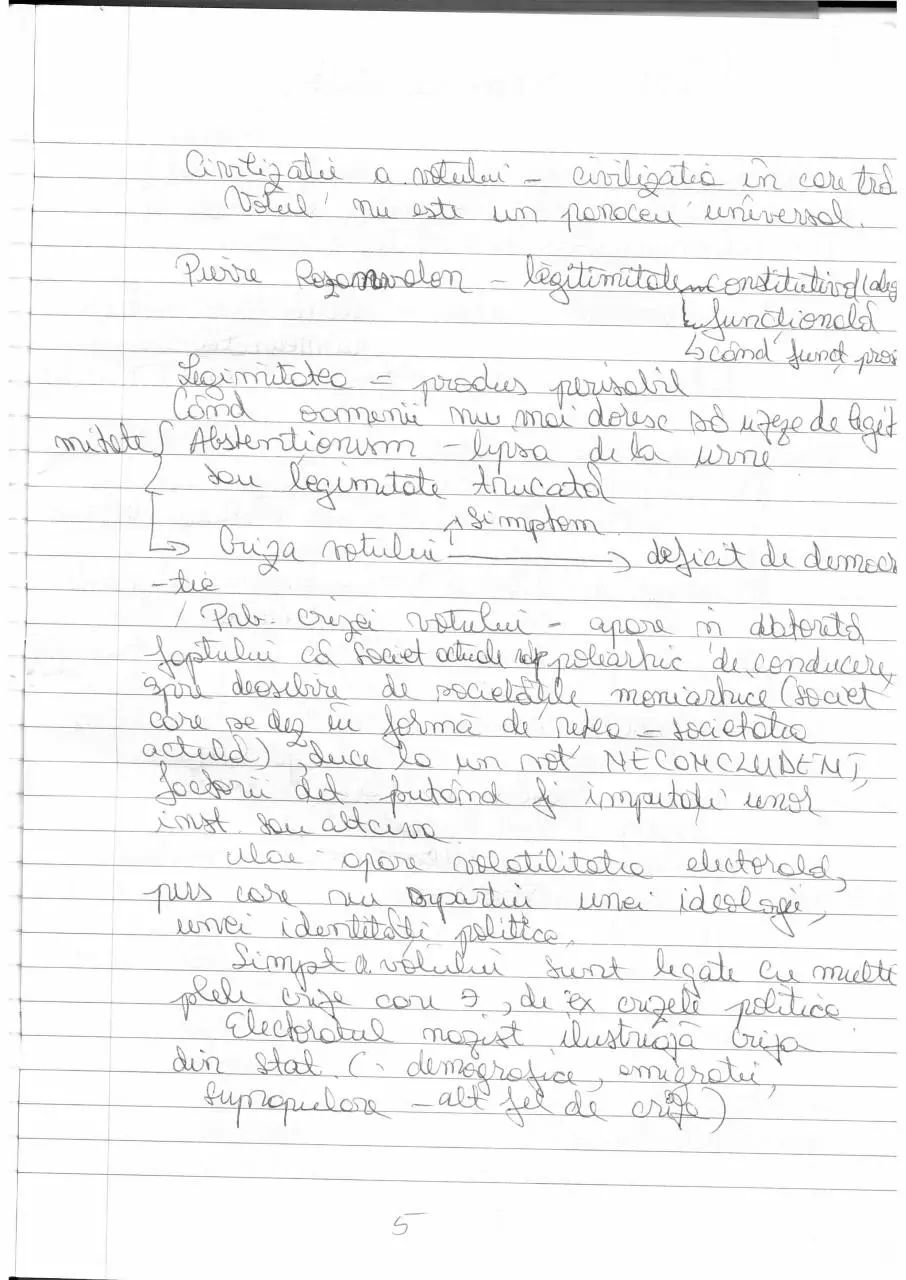 Civilizatie a votului – civilizatia in care tră
Votul nu este un panaceu universal.
Pierre Rozanvalon – legitimitate constitutivă (aleg
↳ funcțională
↳ când funcț pro
Legimitatea = produs perisabil
Când oamenii nu mai doresc să uzeze de legit
mitate { Abstentionism – lipsa de la urne
sau legimitate trucată
↗ Simptom
↳ Criza votului → deficit de democr
-tie
/ Prb. crizei votului – apare în datorită
faptului că societ actuale poliarhic de conducere,
spre deosebire de societățile moniarhice (societ
care se dez în formă de rețea – societatea
actuală), duce la un vot NECONCLUDENT,
factorii det putând fi imputați unor
inst. sau altcuva
apare volatilitatea electorală,
pus care nu aparții unei ideologii,
unei identități politice,
Simpt a votului sunt legate cu multi
plele crize care ∃, de ex crizele politice
Electoratul nazist ilustrează criza
din stat. (. demografice, emigratii,
supropulare – alt fel de crize)
5